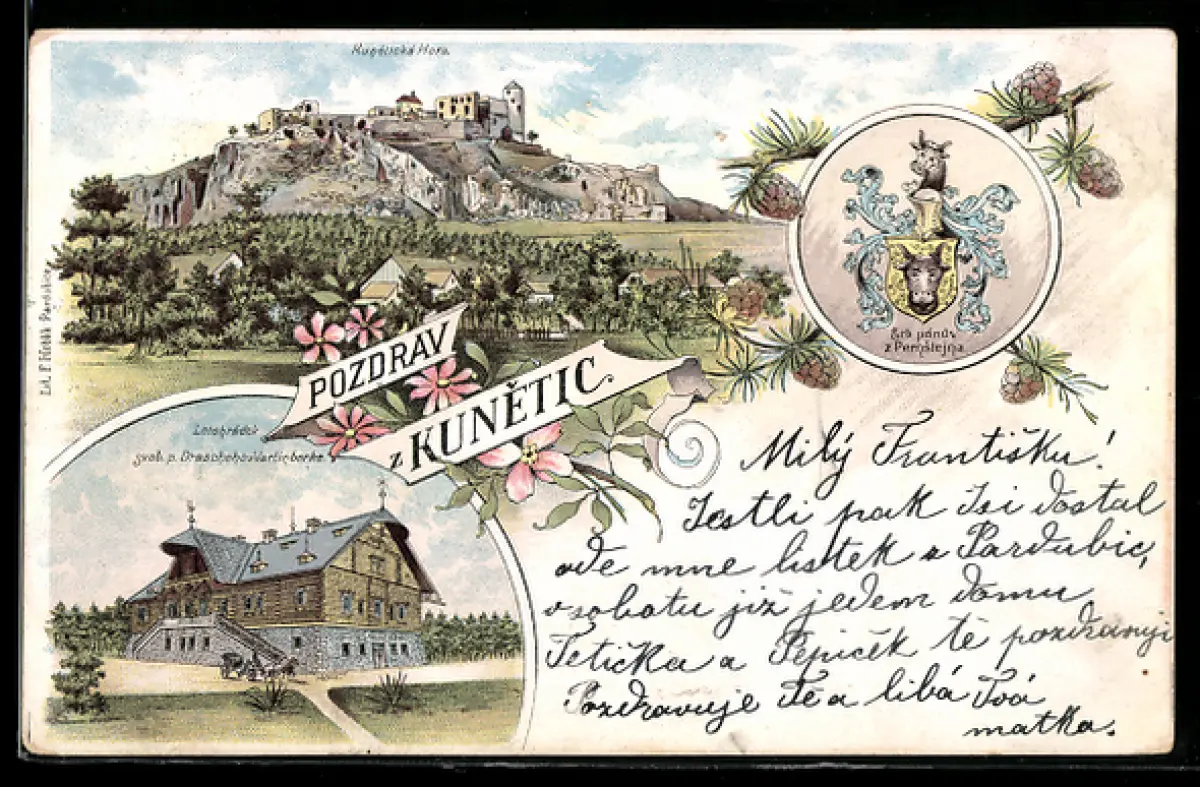 Kunětická Hora.
Erb pánův
z Pernštejna
POZDRAV
z KUNĚTIC.
Letohrádek
svob. p.
Lit. F. Pardubice
Milý Františku!
Jestli pak Jsi dostal
ode mne lístek z Pardubic,
v sobotu již jedem domu
Tetička a Pepiček tě pozdravují
Pozdravuje Tě a líbá Tvá
matka.